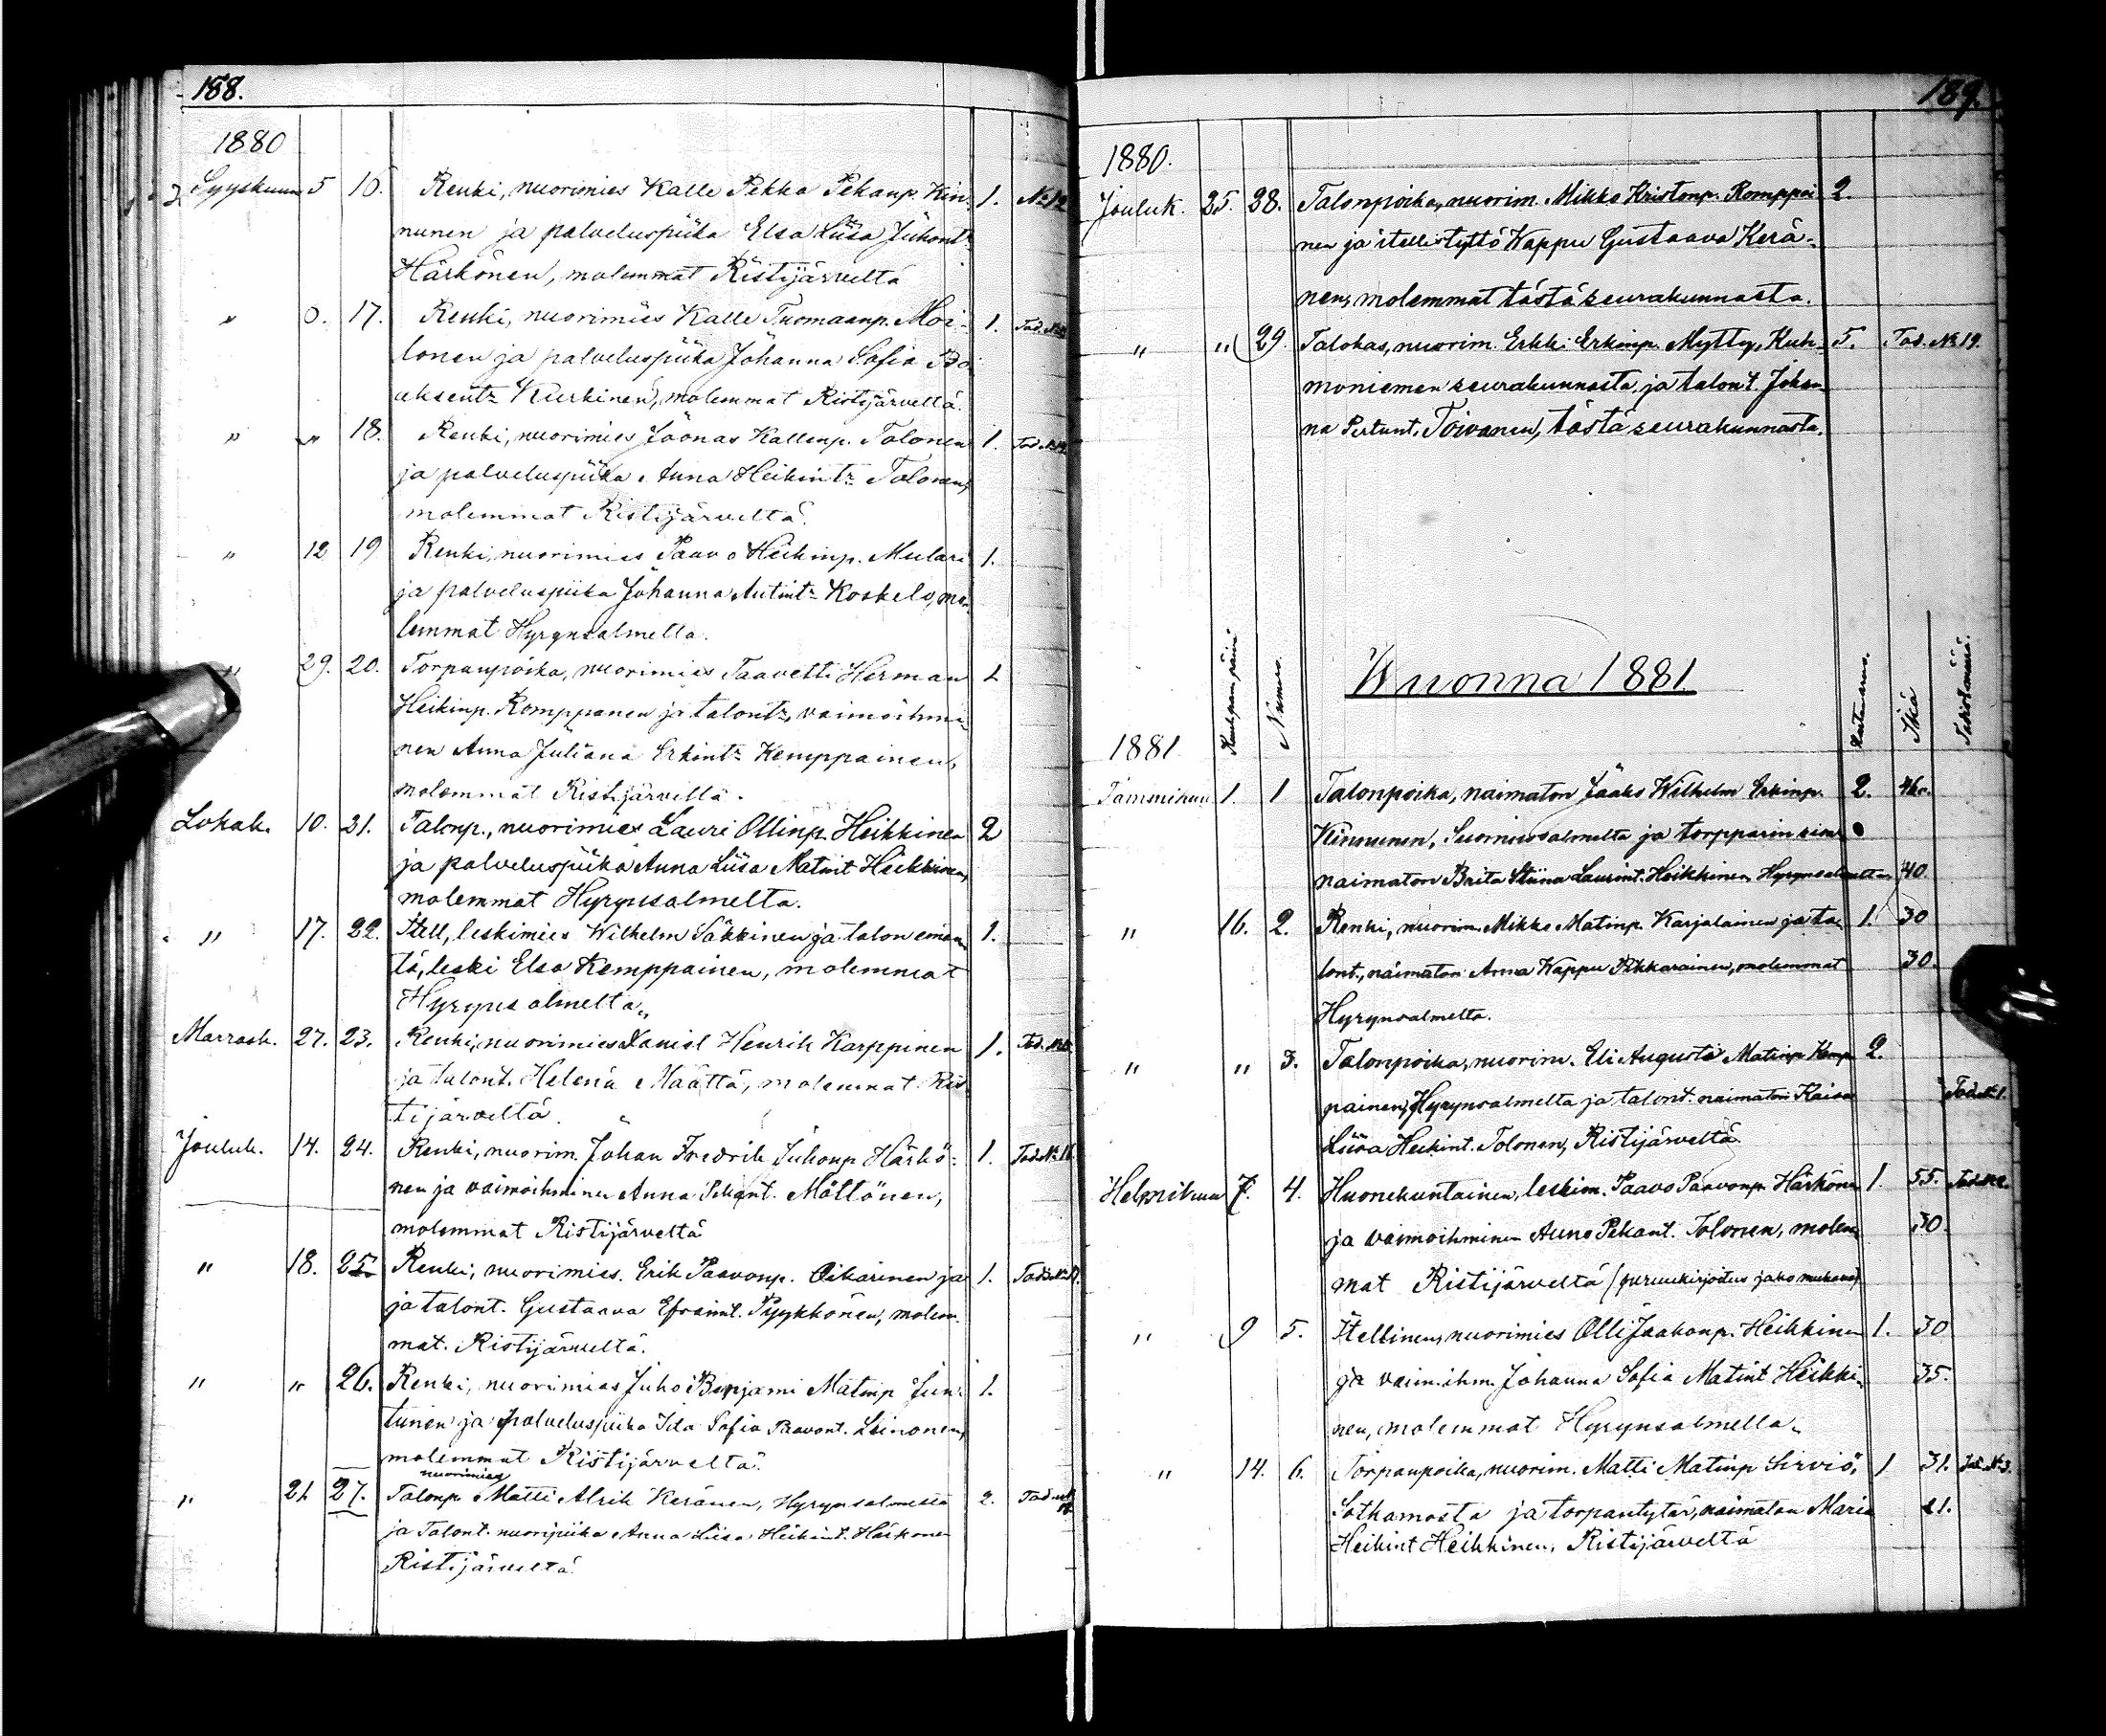 188.
1880
Syyskuun 5 16. Renki, nuorimies Kalle Pekka Pekanp. Kin- 1. No 12
nunen ja palveluspiika Elsa Liisa Juhont:
Härkönen, molemmat Ristijärveltä
" 17. Renki, nuorimies Kalle Tuomaanp. Moi- 1. Tod.
lonen ja palveluspiika Johanna Sofia
Kurkinen, molemmat Ristijärveltä.
" " 18. Renki, nuorimies Joonas Kallenp. Tolonen 1. Tod.
ja palveluspiika Anna Heikint: Tolonen,
molemmat Ristijärveltä.
" 12 19 Renki, nuorimies Paavo Heikinp. Mulari 1.
ja palveluspiika Johanna Antint: Koskelo, mo-
lemmat Hyrynsalmelta.
" 29. 20. Torpanpoika, nuorimies Taavetti Herman 1
Heikinp. Romppanen ja talont:, vaimoihmi-
nen Anna Juliana Erkint: Kemppainen,
molemmat Ristijärveltä.
Lokak. 10. 21. Talonp., nuorimies Lauri Ollinp. Heikkinen 2
ja palveluspiika Anna Liisa Matint Heikkinen,
molemmat Hyrynsalmelta.
" 17. 22. Itell, leskimies Wilhelm Säkkinen ja talon emän- 1.
tä, leski Elsa Kemppainen, molemmat
Hyrynsalmelta.
Marrask. 27. 23. Renki, nuorimies Daniel Henrik Karppinen 1. Tod.
ja talont. Helena Määttä, molemmat Ris-
tijärveltä.
Jouluk. 14. 24. Renki, nuorim. Johan Fredrik Juhonp Härkö- 1. Tod. No 16.
nen ja vaimoihminen Anna Pekant. Möttönen,
molemmat Ristijärveltä
" 18. 25. Renki, nuorimies. Erik Paavonp. Oikarinen ja 1. Tod. No 17.
ja talont. Gustaava Efraimt. Pyykkönen, molem-
mat. Ristijärveltä.
" " 26. Renki, nuorimies Juho Benjami Matinp Jun- 1.
tunen ja palveluspiika Ida Sofia Paavont. Leinonen,
molemmat Ristijärveltä.
nuorimies
" 21. 27. Talonp. Matti Alrik Keränen, Hyrynsalmelta 2. Tod.
ja Talont. nuoripiika Anna Liisa Heikint. Härkönen
Ristijärveltä
189.
1880.
Jouluk. 25. 28. Talonpoika, nuorim. Mikko Kristonp. Romppai- 2.
nen ja itellistyttö Wappu Gustaava Kerä-
nen, molemmat tästä seurakunnasta.
" " 29. Talokas, nuorim. Erkki Erkinp. Mytty, Kuh- 5. Tod. No 19.
moniemen seurakunnasta, ja talont. Johan-
na Pertunt. Toivonen, tästä seurakunnasta.
Wuonna 1881.
1881 Kuulpan. päivä Numero. Ikä Todistuksia.
Tammikuu 1. 1 Talonpoika, naimaton Jaako Wilhelm Erkinp. 2. 46.
Kinnunen, Suomussalmelta ja torpparin sisar
naimaton Brita Stiina Laurint. Heikkinen Hyrynsalmelta 40
" 16. 2. Renki, nuorim. Mikko Matinp. Karjalainen ja ta- 1. 30
lont., naimaton Anna Wappu Pikkarainen, molemmat 30.
Hyrynsalmelta.
" " 3. Talonpoika, nuorim. Eli Augusti Matinp Kemp- 2.
painen, Hyrynsalmelta ja talont. naimaton Kaisa Tod. No 1.
Liisa Heikint. Tolonen, Ristijärveltä
Helmikuu 7. 4. Huonekuntainen, leskim. Paavo Paavonp Härkönen 1. 55. Tod. No 2.
ja vaimoihminen Anna Pekant. Tolonen, molem- 30.
mat Ristijärveltä (perukirjoitus jako mukana)
" 9 5. Itellinen, nuorimies Olli Jaakonp. Heikkinen 1. 30
ja vaim.ihm. Johanna Sofia Matint Heikki- 35.
nen, molemmat Hyrynsalmella.
" 14. 6. Torpanpoika, nuorim. Matti Matinp Sirviö, 1 31. Tod. No 3.
Sotkamosta ja torpantytär, naimaton Maria 21.
Heikint Heikkinen, Ristijärveltä